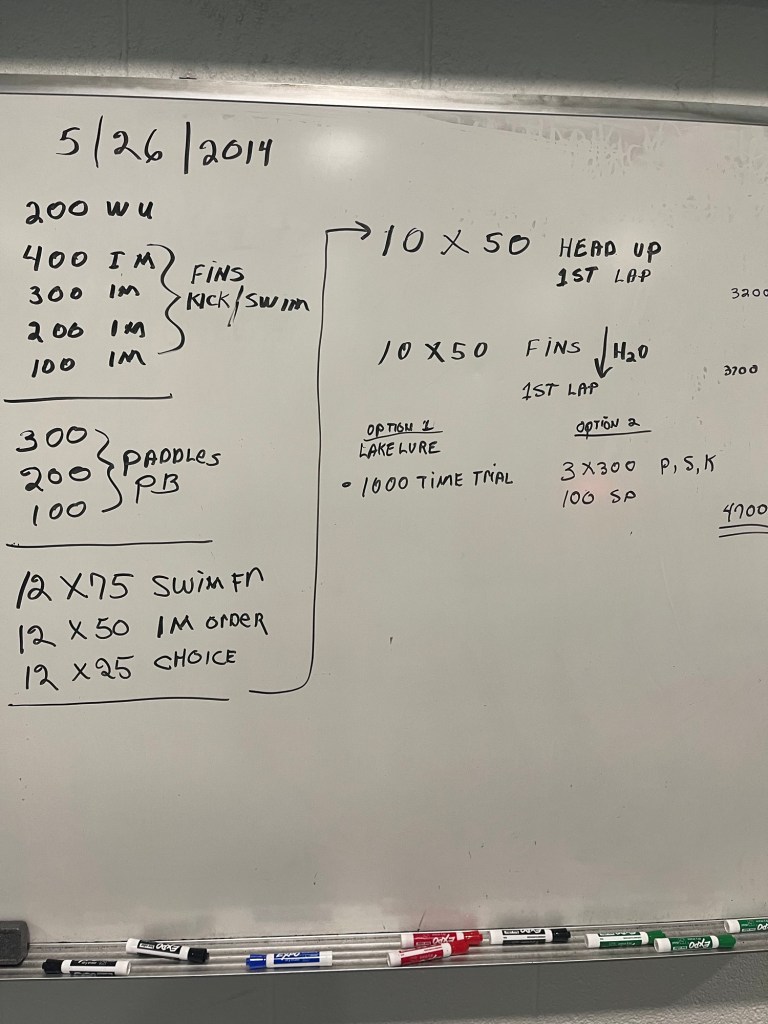 5/26/2014
200 WU
400 IM
300 IM
200 IM
100 IM
FINS
KICK/SWIM
300
200
100
PADDLES
PB
12 X 75 SWIM FN
12 X 50 IM ORDER
12 X 25 CHOICE
10 X 50 HEAD UP
1ST LAP
3200
10 X 50 FINS ↓ H2O
1ST LAP
3700
OPTION 1
LAKE LURE
• 1000 TIME TRIAL
OPTION 2
3 X 300 P, S, K
100 SP
4700
EXPO
EXPO
EXPO
EXPO
EXPO
EXPO